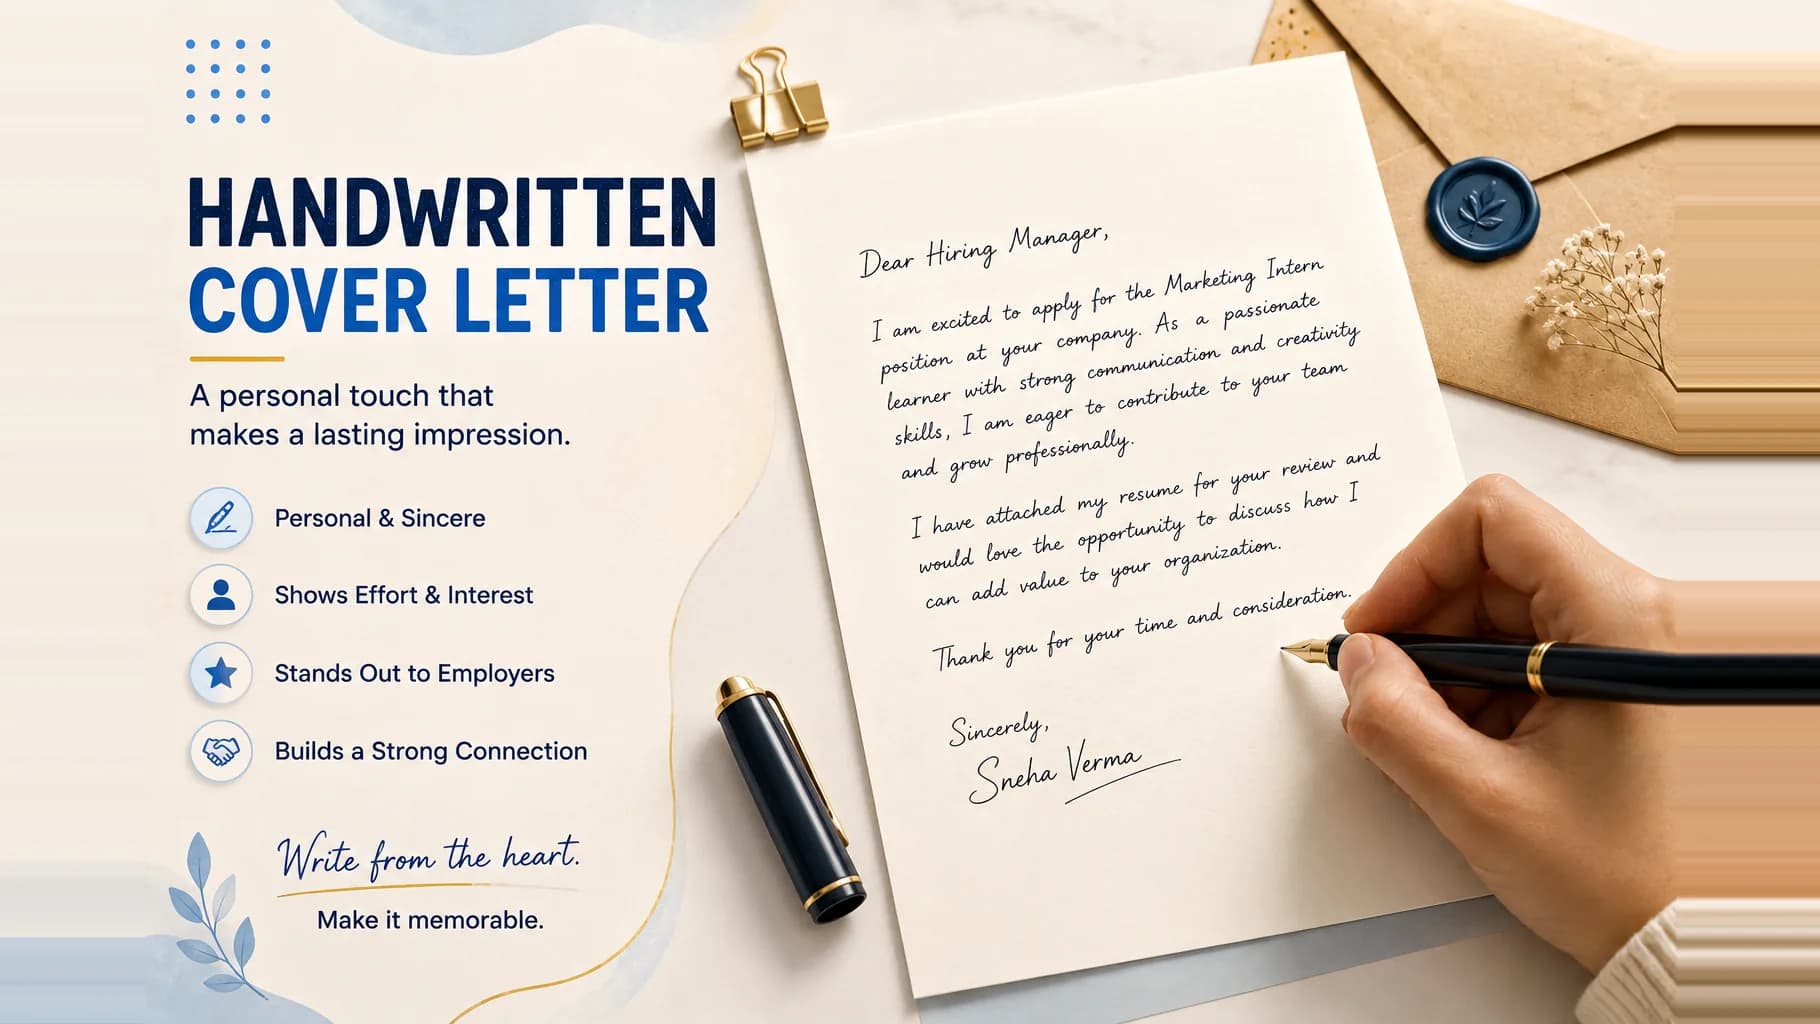 HANDWRITTEN
COVER LETTER
A personal touch that
makes a lasting impression.
Personal & Sincere
Shows Effort & Interest
Stands Out to Employers
Builds a Strong Connection
Write from the heart.
Make it memorable.
Dear Hiring Manager,
I am excited to apply for the Marketing Intern
position at your company. As a passionate
learner with strong communication and creativity
skills, I am eager to contribute to your team
and grow professionally.
I have attached my resume for your review and
would love the opportunity to discuss how I
can add value to your organization.
Thank you for your time and consideration.
Sincerely,
Sneha Verma